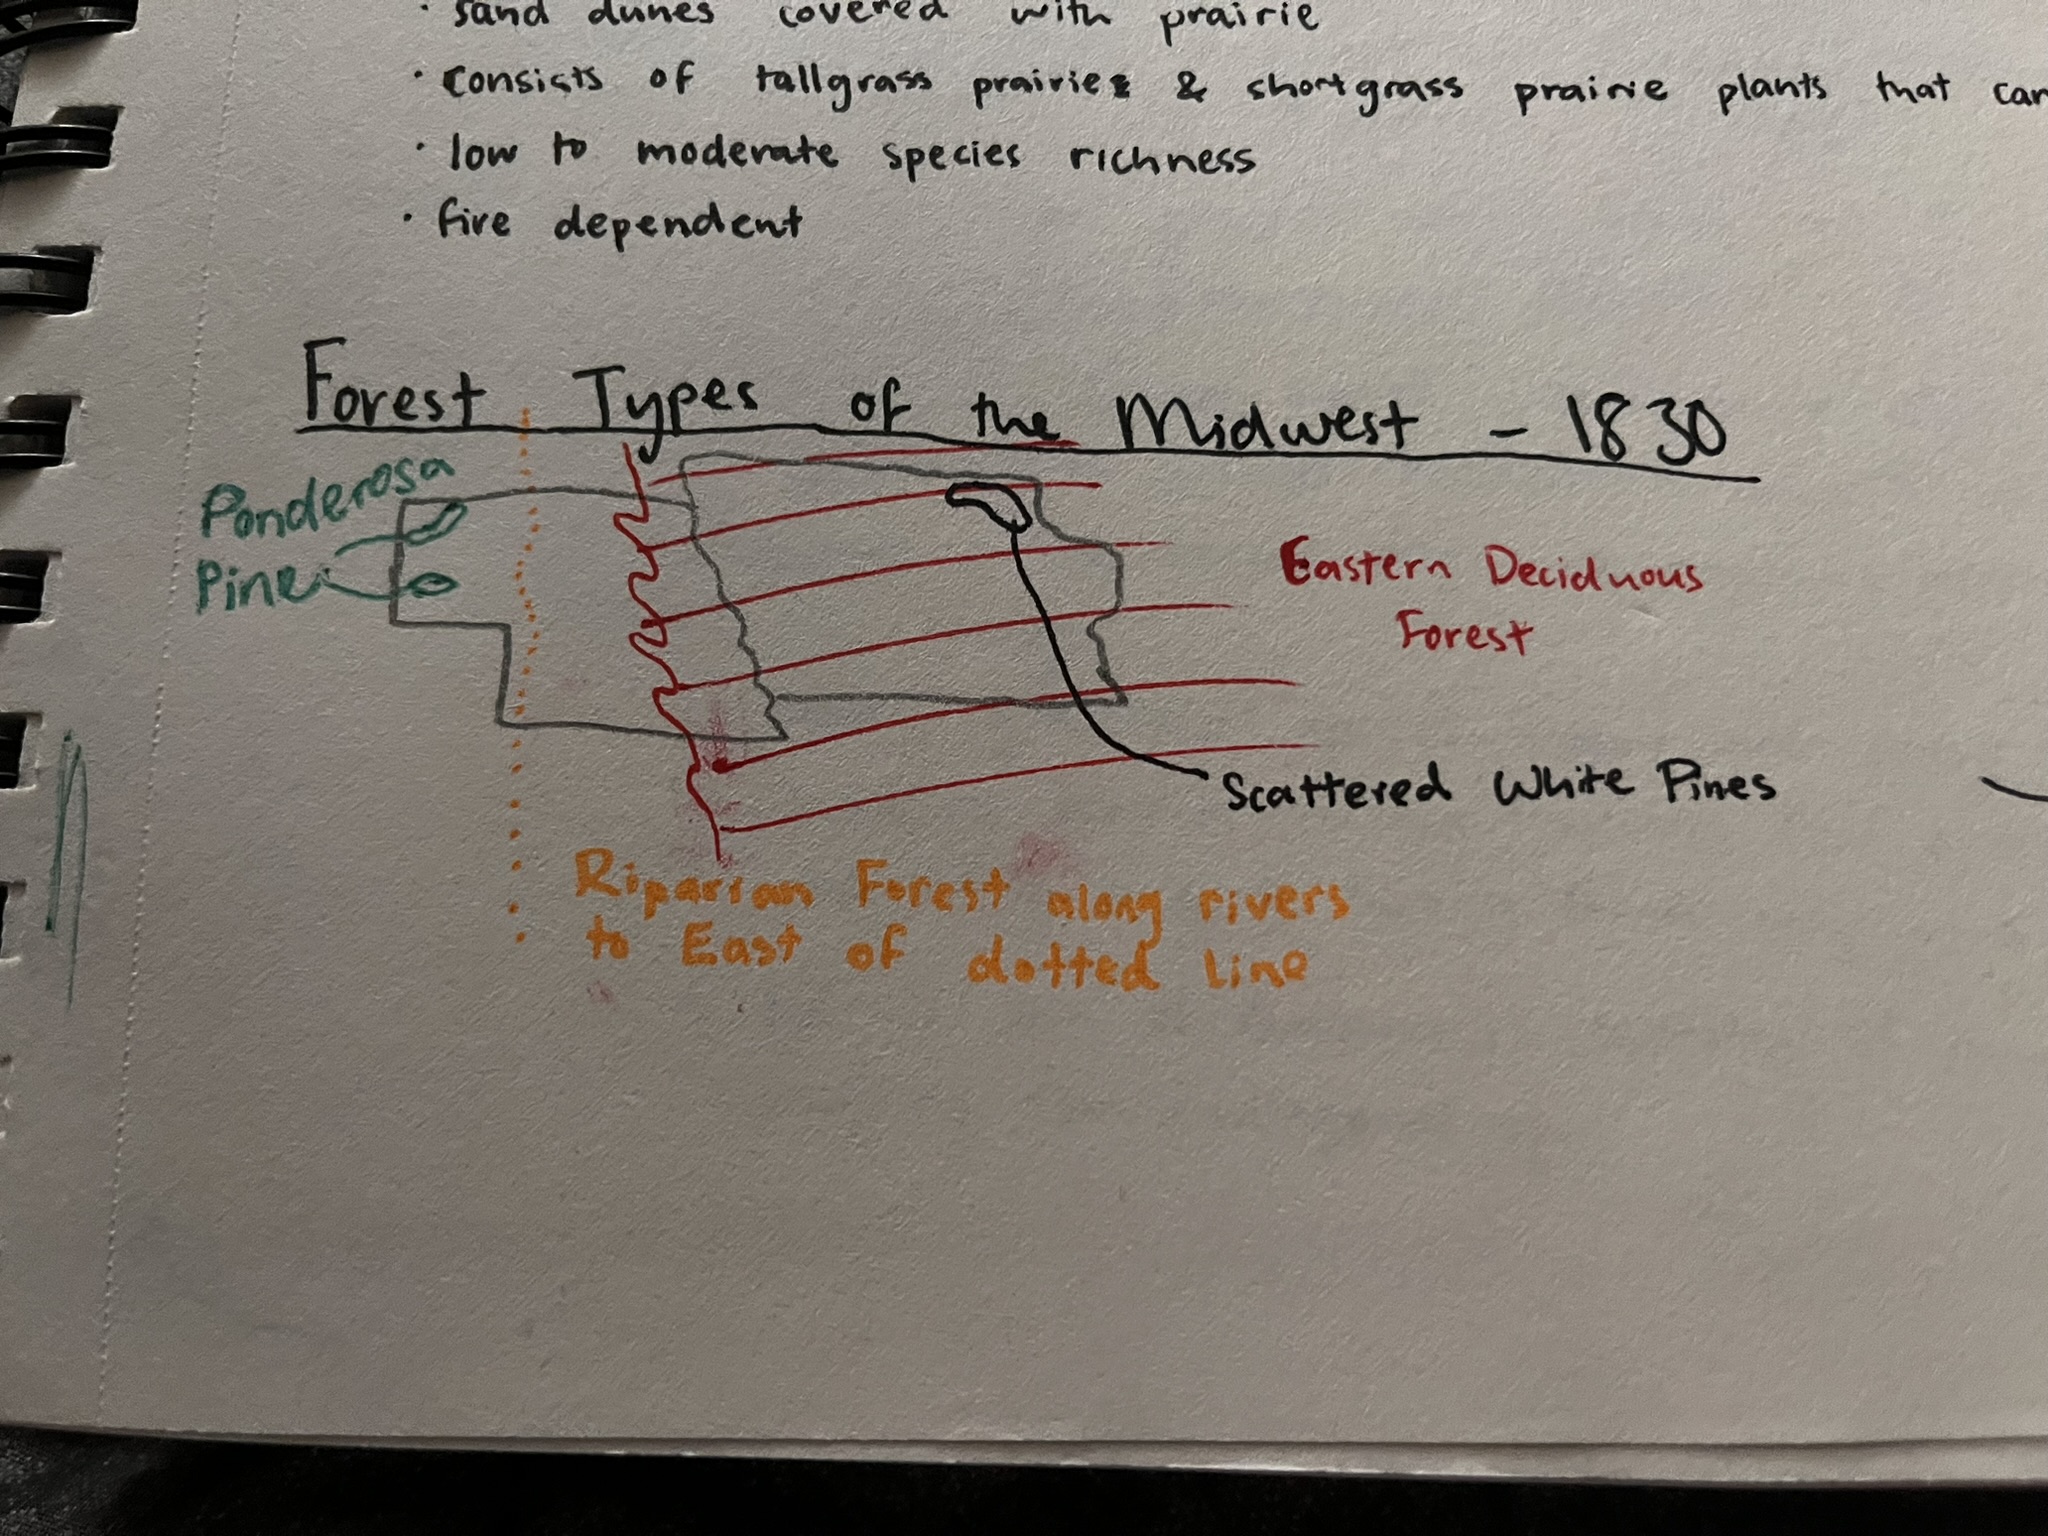 · sand dunes covered with prairie
· consists of tallgrass prairie & shortgrass prairie plants that can
· low to moderate species richness
· fire dependent
Forest Types of the Midwest - 1830
Ponderosa
Pine
Eastern Deciduous
Forest
Scattered White Pines
Riparian Forest along rivers
to East of dotted line